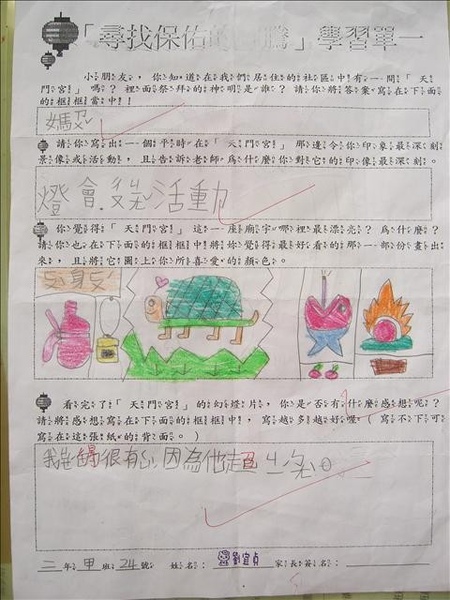 「尋找保佑的圖騰」學習單一
小朋友，你知道在我們居住的社區中有一間「天
門宮」嗎？裡面祭拜的神明是誰？請你將答案寫在下面
的框框當中！
媽ㄗㄨˇ
請你寫出一個平時在「天門宮」那邊令你印象最深刻
景像或活動，且告訴老師為什麼你對它的印像最深刻。
燈會 活動
你覺得「天門宮」這一座廟宇哪裡最漂亮？為什麼？
請你也在下面的框框中將妳覺得最好看的那一部份畫出
來，且將它圖上你所喜愛的顏色。
看完了「天門宮」的幻燈片，你是否有什麼感想呢？
請將感想寫在下面的框框中，寫越多越好喔（寫不下可
寫在這張紙的背面。）
很有 因為他超 出名。
二年甲班24號 姓名：劉宜貞 家長簽名：